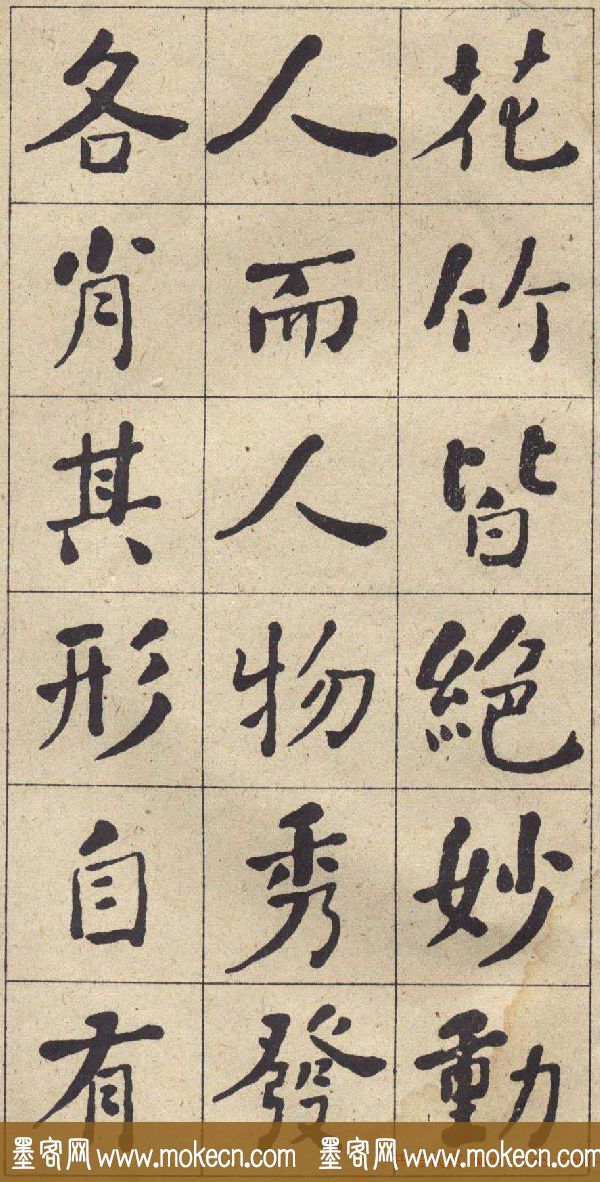 花竹皆絕妙動
人而人物秀發
各肖其形自有
墨客网 www.mokecn.com 墨客网 www.mokecn.com